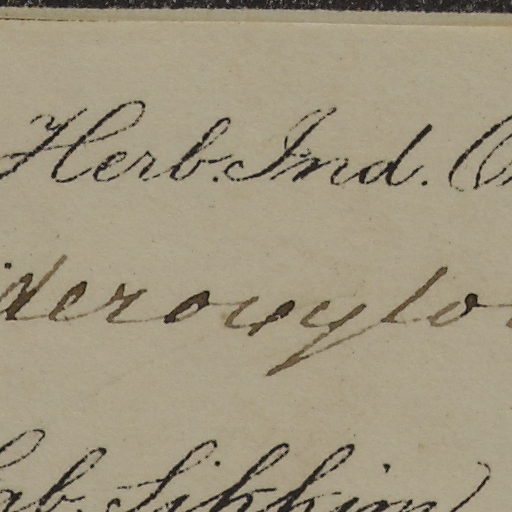 Herb. Ind. O
deroxylo
ab. Sikkim